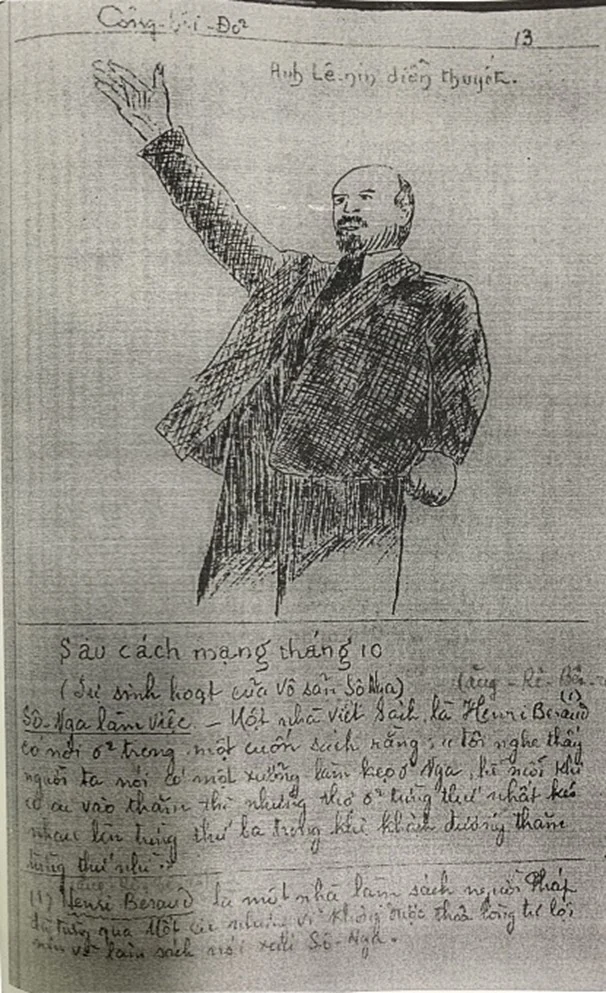 Công- -Đợ
13
Anh Lê-nin diễn thuyết.
Sau cách mạng tháng 10
(Sự sinh hoạt của vô sản Sô Nga) (ăng-Rê-Bê-r
Sô-Nga làm việc. – Một nhà viết sách là Henri Beraud (1)
có nói ở trong một cuốn sách rằng: "tôi nghe thấy
người ta nói có một xưởng làm kẹo ở Nga, khi
có ai vào thăm thì những thợ ở từng thứ nhất kéo
nhau lên từng thứ ba trong khi khách đương thăm
từng thứ nhì.
(1) Henri Beraud là một nhà làm sách người Pháp
đã từng qua nhưng vì không được lòng tư lợi
nên về làm sách nói xấu Sô-Nga.